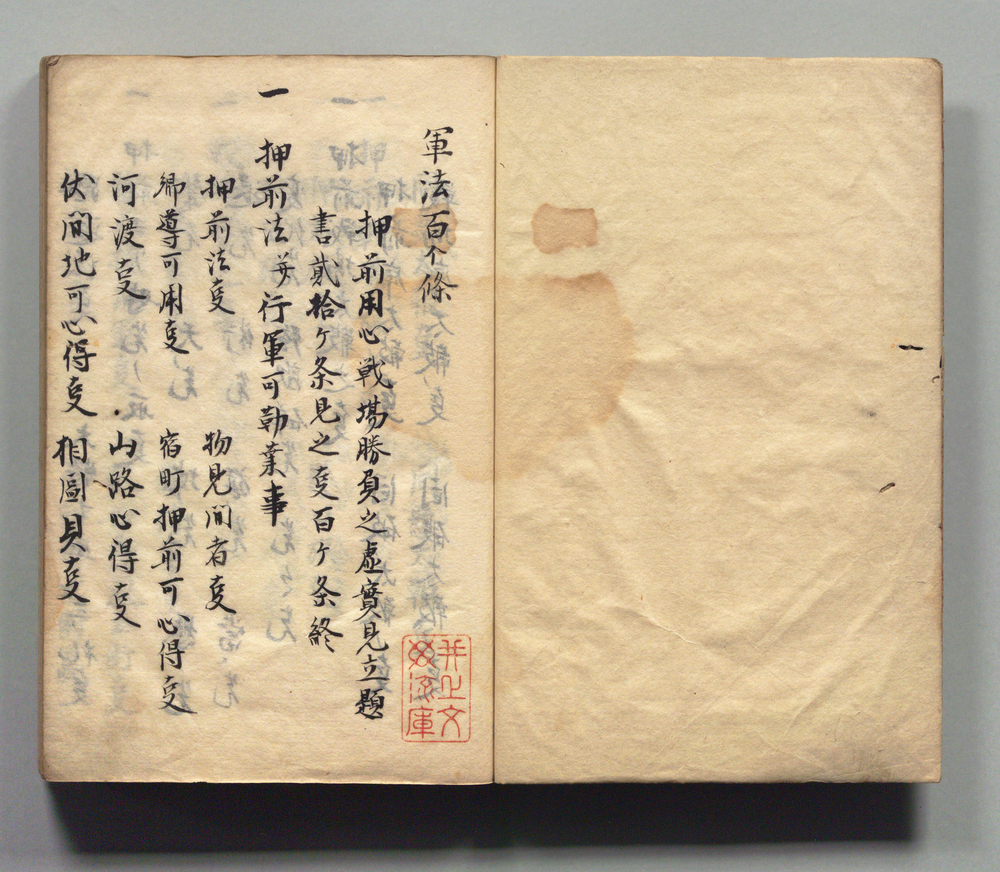 軍法百个條
押前用心戦場勝負之虚實見立題
書貳拾ケ条見之㕝百ケ条終
一
押前法并行軍可勤業事
押前法㕝 物見間者㕝
郷導可用㕝 宿町押前可心得㕝
河渡㕝 山路心得㕝
伏間地可心得㕝 相圖貝㕝
井上文庫